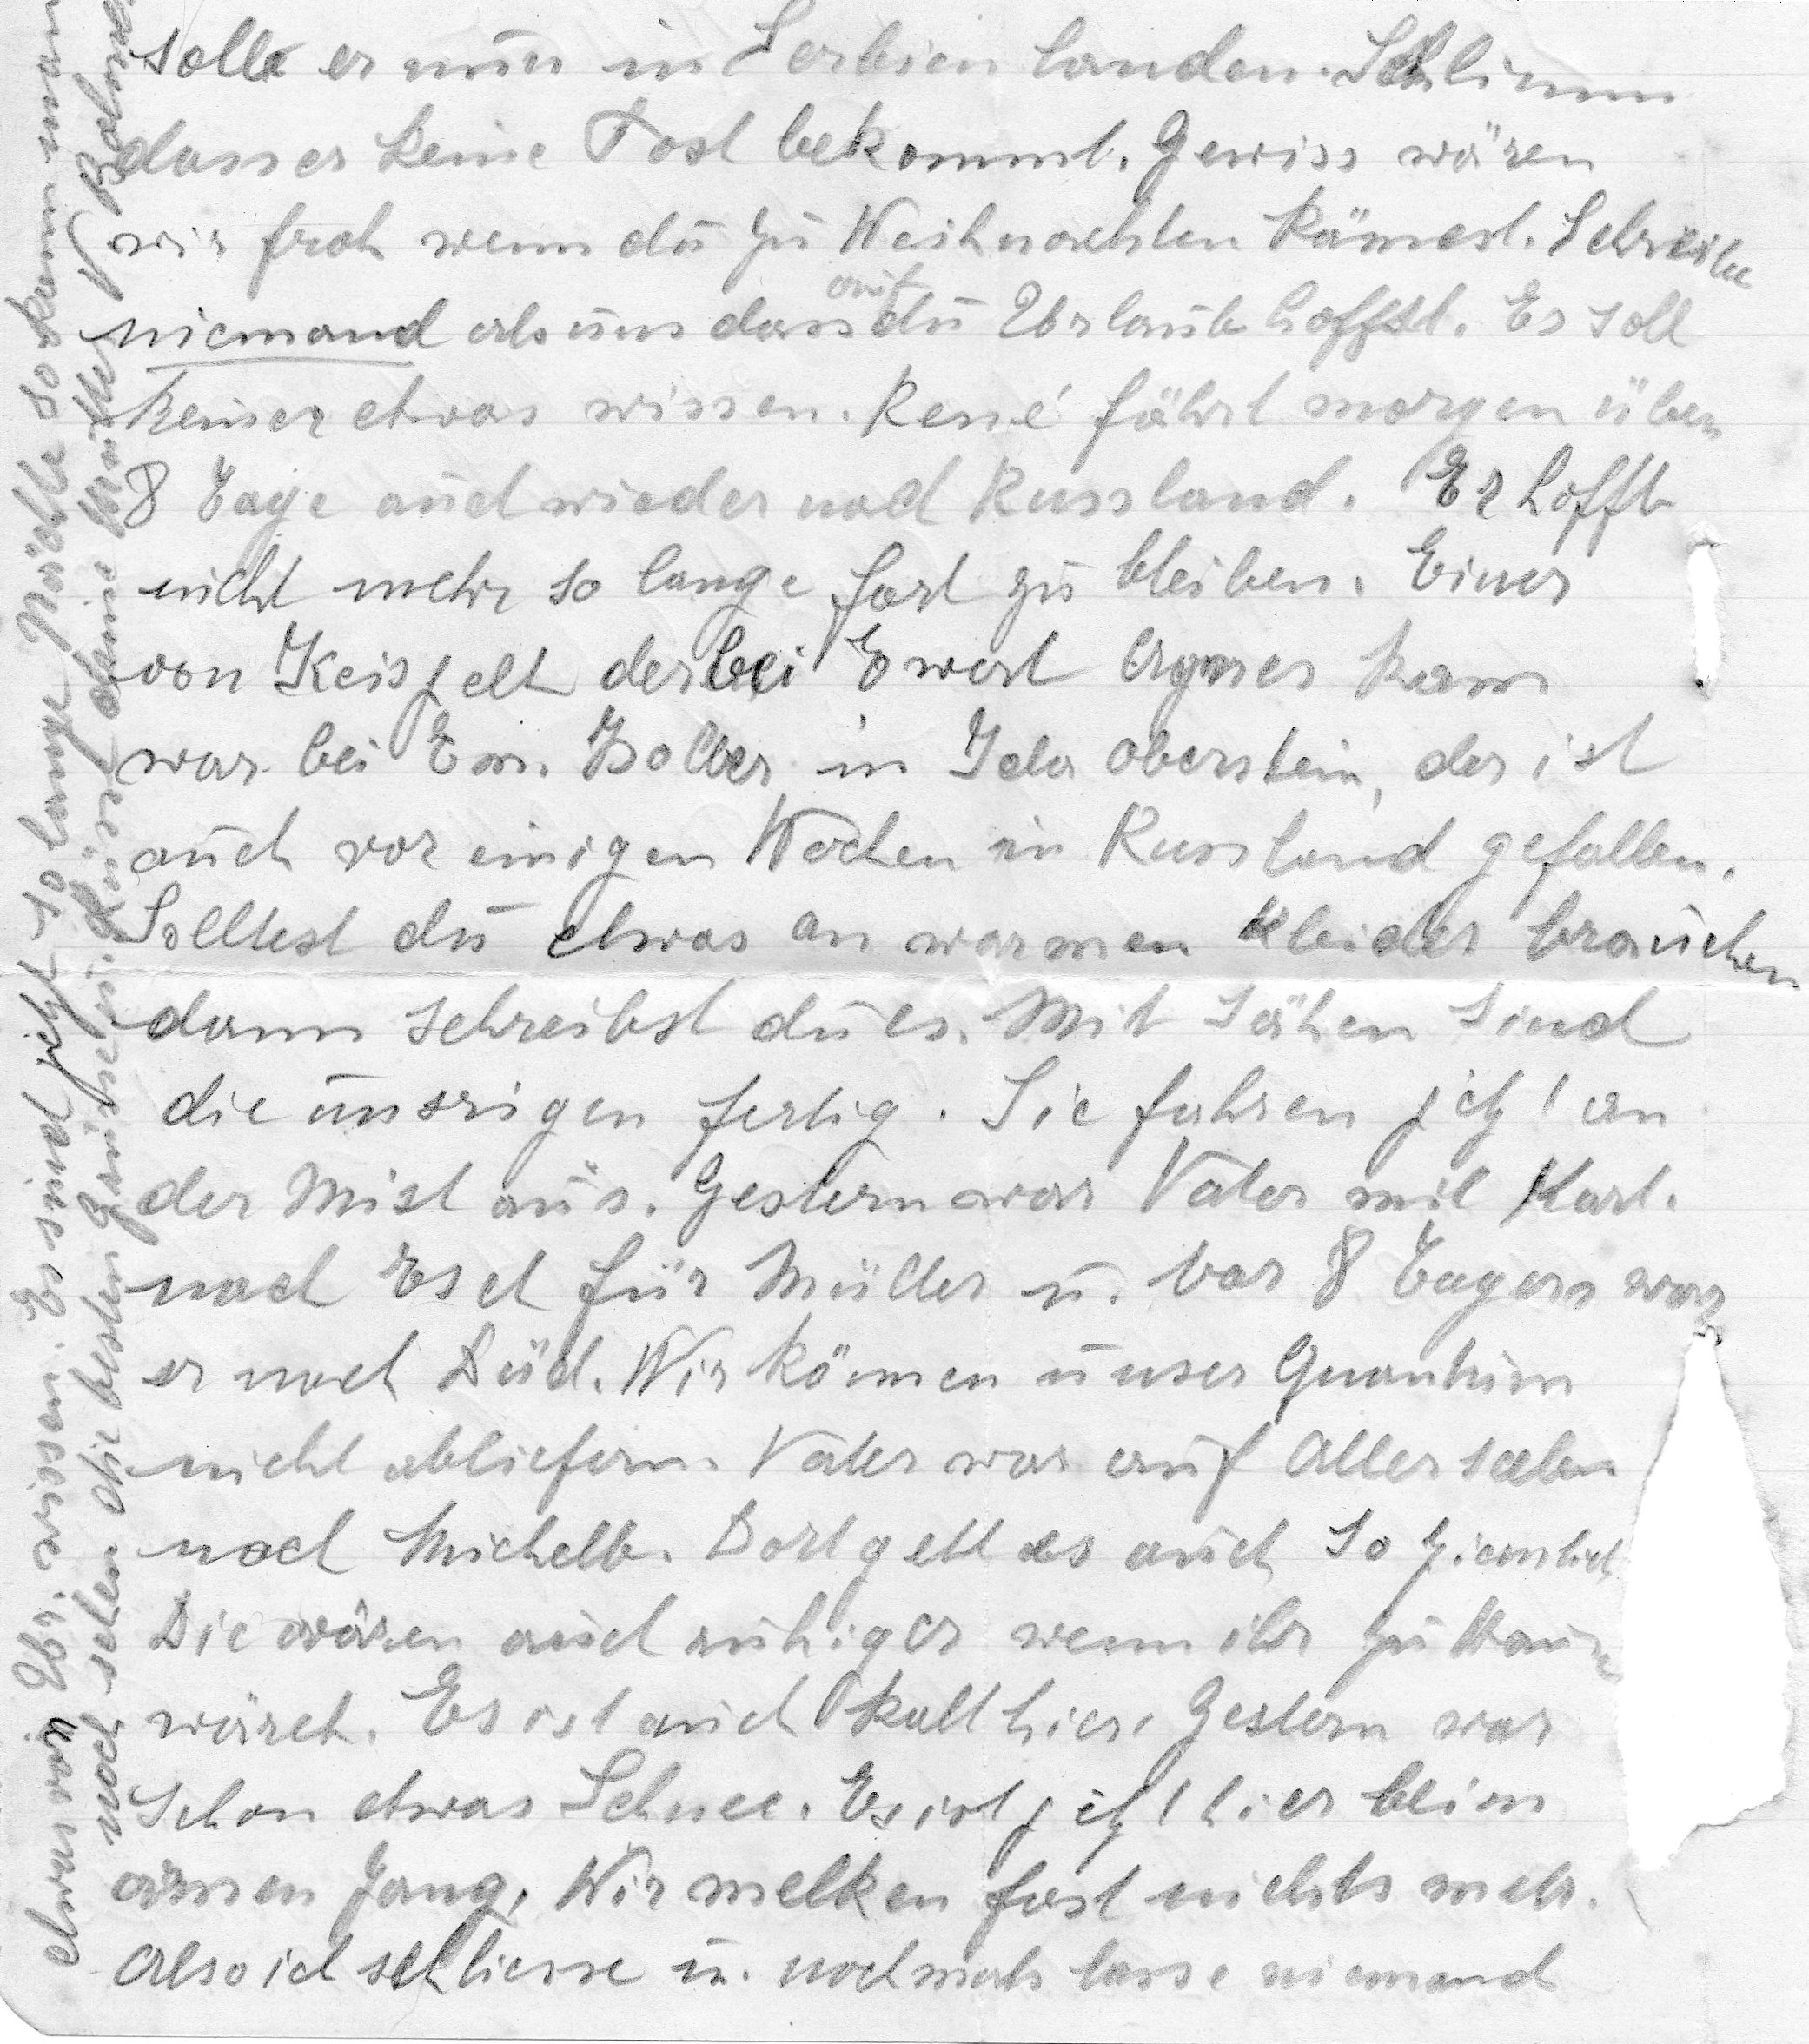 solle er nun in Serbien landen. Schlimm
dass er keine Post bekommt. Gewiss wären
wir froh wenn du zu Weihnachten kämest. Schreibe
niemand als uns dass du auf Urlaub hoffst. Es soll
keiner etwas wissen. René fährt morgen über
8 Tage auch wieder nach Russland. Er hofft
nicht mehr so lange fort zu bleiben. Einer
von Keispelt der bei Ewert kam
war bei Em. in Ida Oberstein, der ist
auch vor einigen Wochen in Russland gefallen.
Solltest du etwas an warmen Kleider brauchen
dann schreibst du es. Mit sähen sind
die unsrigen fertig. Sie fahren jetzt an
der Mist aus. Gestern war Vater mit Kart.
nach Esch für Müller u. vor 8 Tagen war
er nach Düd. Wir können unser Quantum
nicht abliefern. Vater war auf Allerseelen
nach Michelb. Dort geht es auch so ziemlich
Die wären auch ruhiger wenn ihr zu Hause
wäret. Es ist auch kalt hier. Gestern war
schon etwas Schnee. Es ist jetzt hier beim
armen Jang. Wir melken fast nichts mehr.
Also ich schliesse u. nochmals lasse niemand
etwas von Url. wissen. Es sind jetzt so lange Nächte so kann man
noch selten die besten Grüsse u. Küsse deine Mutter